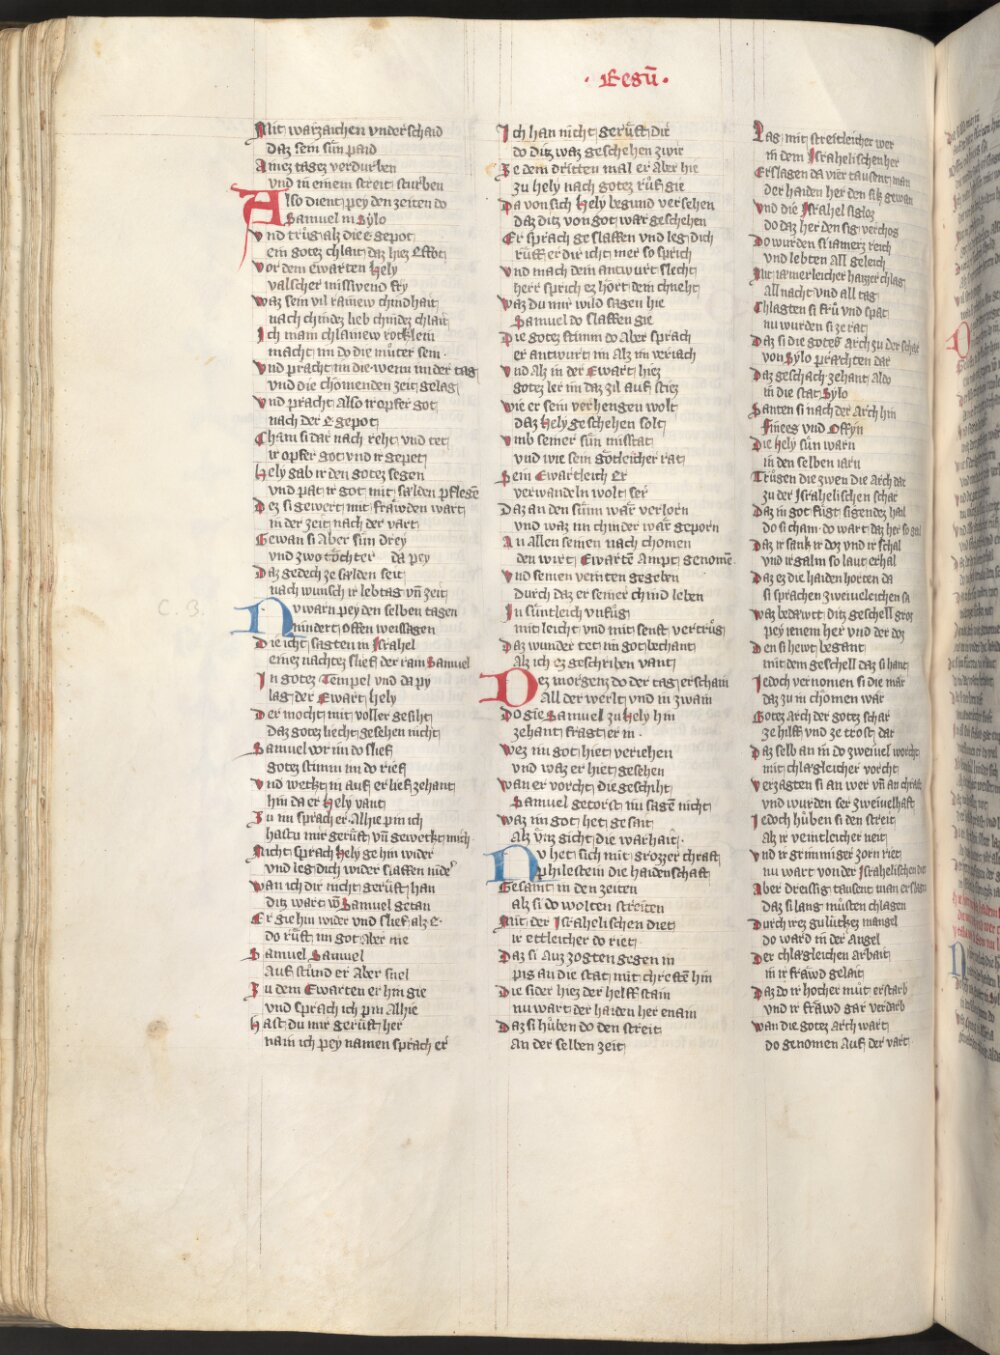 · Regū ·
Mit warzaichen vnderschaid
daz sein sün paid
Ainez tagez verdurben
vnd in einem streit sturben
Also dient pey den zeiten do
Samuel in Sylo
vnd trůg alz die e gepot
ein gotez chlait daz hiez Effot
vor dem Ewarten Hely
valscher missvend fry
waz sein vil rainew chindhait
nach chindez lieb chindez chlait
Ich main chlainew rocklein
macht im do die můter sein ·
vnd pracht im die wenn in der tag
vnd die chömenden zeit gelag
vnd pracht Also ir opfer got
nach der E gepot
Cham si dar nach reht vnd tet
ir opfer got vnd ir gepet
Hely gab ir den gotez segen
vnd pat ir got mit sälden pflegē
Dez si gewert mit fräwden wart
in der zeit nach der vart
Gewan si Aber sün drey
vnd zwo töchter da pey
Daz gedech ze sälden seit
nach wunsch ir lebtag vn̄ zeit
Nv warn pey den selben tagen
nindert offen weissagen
Die icht sagten in Israhel
einez nachtez slief der rain Samuel
In gotez Tempel vnd da py
lag der Ewart Hely
Der mocht mit voller gesiht
daz gotez liecht gesehen nicht
Samuel vor im do slief
gotez stimm im do rief
vnd wekt in auf er lief zehant
hin da er Hely vant
Zu im sprach er Alhie pin ich
hastu mir gerůft vn̄ gewekt mich
Nicht sprach Hely ge hin wider
vnd leg dich wider slaffen nider
wan ich dir nicht gerůft han
ditz wart vō Samuel getan
Er gie hin wider vnd slief alz e·
do růft im got Aber me
Samuel Samuel
Auf stůnd er Aber snel
Zu dem Ewarten er hin gie
vnd sprach ich pin Alhie
Hast du mir gerůft her
nain ich pey namen sprach er
Ich han nicht gerůft dir
do ditz waz geschehen zwir
Ze dem dritten mal er Aber hie
zu hely nach gotez růf gie
Da von sich Hely begund versehen
daz ditz von got wär geschehen
Er sprach ge slaffen vnd leg dich
růff er dir icht mer so sprich
vnd mach dein antwurt slecht
herr sprich ez hört dein chneht
waz du mir wild sagen hie
Samuel do slaffen gie
Die gotez stimm do Aber sprach
er antwurt im Alz im veriach
vnd Alz in der Ewart hiez
gotez ler im daz zil auf stiez
wie er sein verhengen wolt
daz Hely geschehen solt
vmb seiner sün misstat
vnd wie sein götleicher rat
Sein Ewartleich Er
verwandeln wolt ser
Daz an den sünn wär verlorn
vnd waz im chinder wär geporn
An allen seinen nach chomen
den wirt Ewartē Ampt genomē
vnd seinen veinten gegeben
durch daz er seiner chind leben
In süntleich vnfůg
mit leicht vnd mit senft vertrůg
Daz wunder tet im got bechant
Alz ich ez geschriben vant
Dez morgenz do der tag erschain
All der werlt vnd in zwain
Do gie Samuel zu Hely hin
zehant fragt er in ·
wez im got hiet veriehen
vnd waz er hiet gesehen
wan er vorcht die geschiht
Samuel getorst im sagē nicht
waz im got het gesait
alz vnz gicht die warhait ·
Nv het sich mit grozzer chraft
philestein die haidenschaft
Gesamt in den zeiten
alz si do wolten streiten
Mit der Israhelischen diet
ir ettleicher do riet ·
Daz si Auz zogten gegen in
piz an die stat mit chreftē hin
Die sider hiez der helff stain
nu wart der haiden her enain
Daz si hůben do den streit
An der selben zeit
Lag mit streitleicher wer
in dem Israhelischen her
Erslagen da vier tausent man
der haiden her den sik gewan
vnd die Israhel sigloz
do daz her den sig verchos
Do wurden si iamerz reich
vnd lebten all geleich
Mit iämerleicher hazzer chlag
All nacht vnd all tag
Chlagten si frů vnd spat
nu wurden si ze rat
Daz si die gotes arch zu der schar
von Sylo prachten dar
Daz geschach zehant aldo
in die stat Sylo
Santen si nach der Arch hin
Finees vnd Offyn
Die Hely sün warn
in den selben iarn
Trůgen die zwen die Arch dar
zu der Israhelischen schar
Daz in got fůgt sigendez hail
do si cham do wart daz her so gail
Daz ir sank ir doz vnd ir schal
vnd ir galm so laut erhal
Daz ez die haiden horten da
si sprachen zweiueleichen sa
waz bedäwtt ditz geschell groz
pey ienem her vnd der doz
Den si hewt begant
mit dem geschell daz si hant
Iedoch vernomen si die mär
daz zu in chomen wär
Gotez arch der gotez schar
ze hilff vnd ze trost dar
Daz selb an in do zweiuel worcht
mit chlägleicher vorcht
verzagten si an wer vn̄ an chraft
vnd wurden ser zweiuelhaft
Iedoch hůben si den streit
Alz ir veintleicher neit
vnd ir grimmiger zorn riet
nu wart von der Israhelischen diet
Aber dreissig tausent man erslagen
daz si lang můsten chlagen
Durch irez gulükez mangel
do ward in der Angel
Der chlägleichen arbait
in ir fräwd gelait
Daz do ir hocher můt erstarb
vnd ir fräwd gar verdarb
wan die gotez Arch wart
do genomen Auf der vart
C. B.